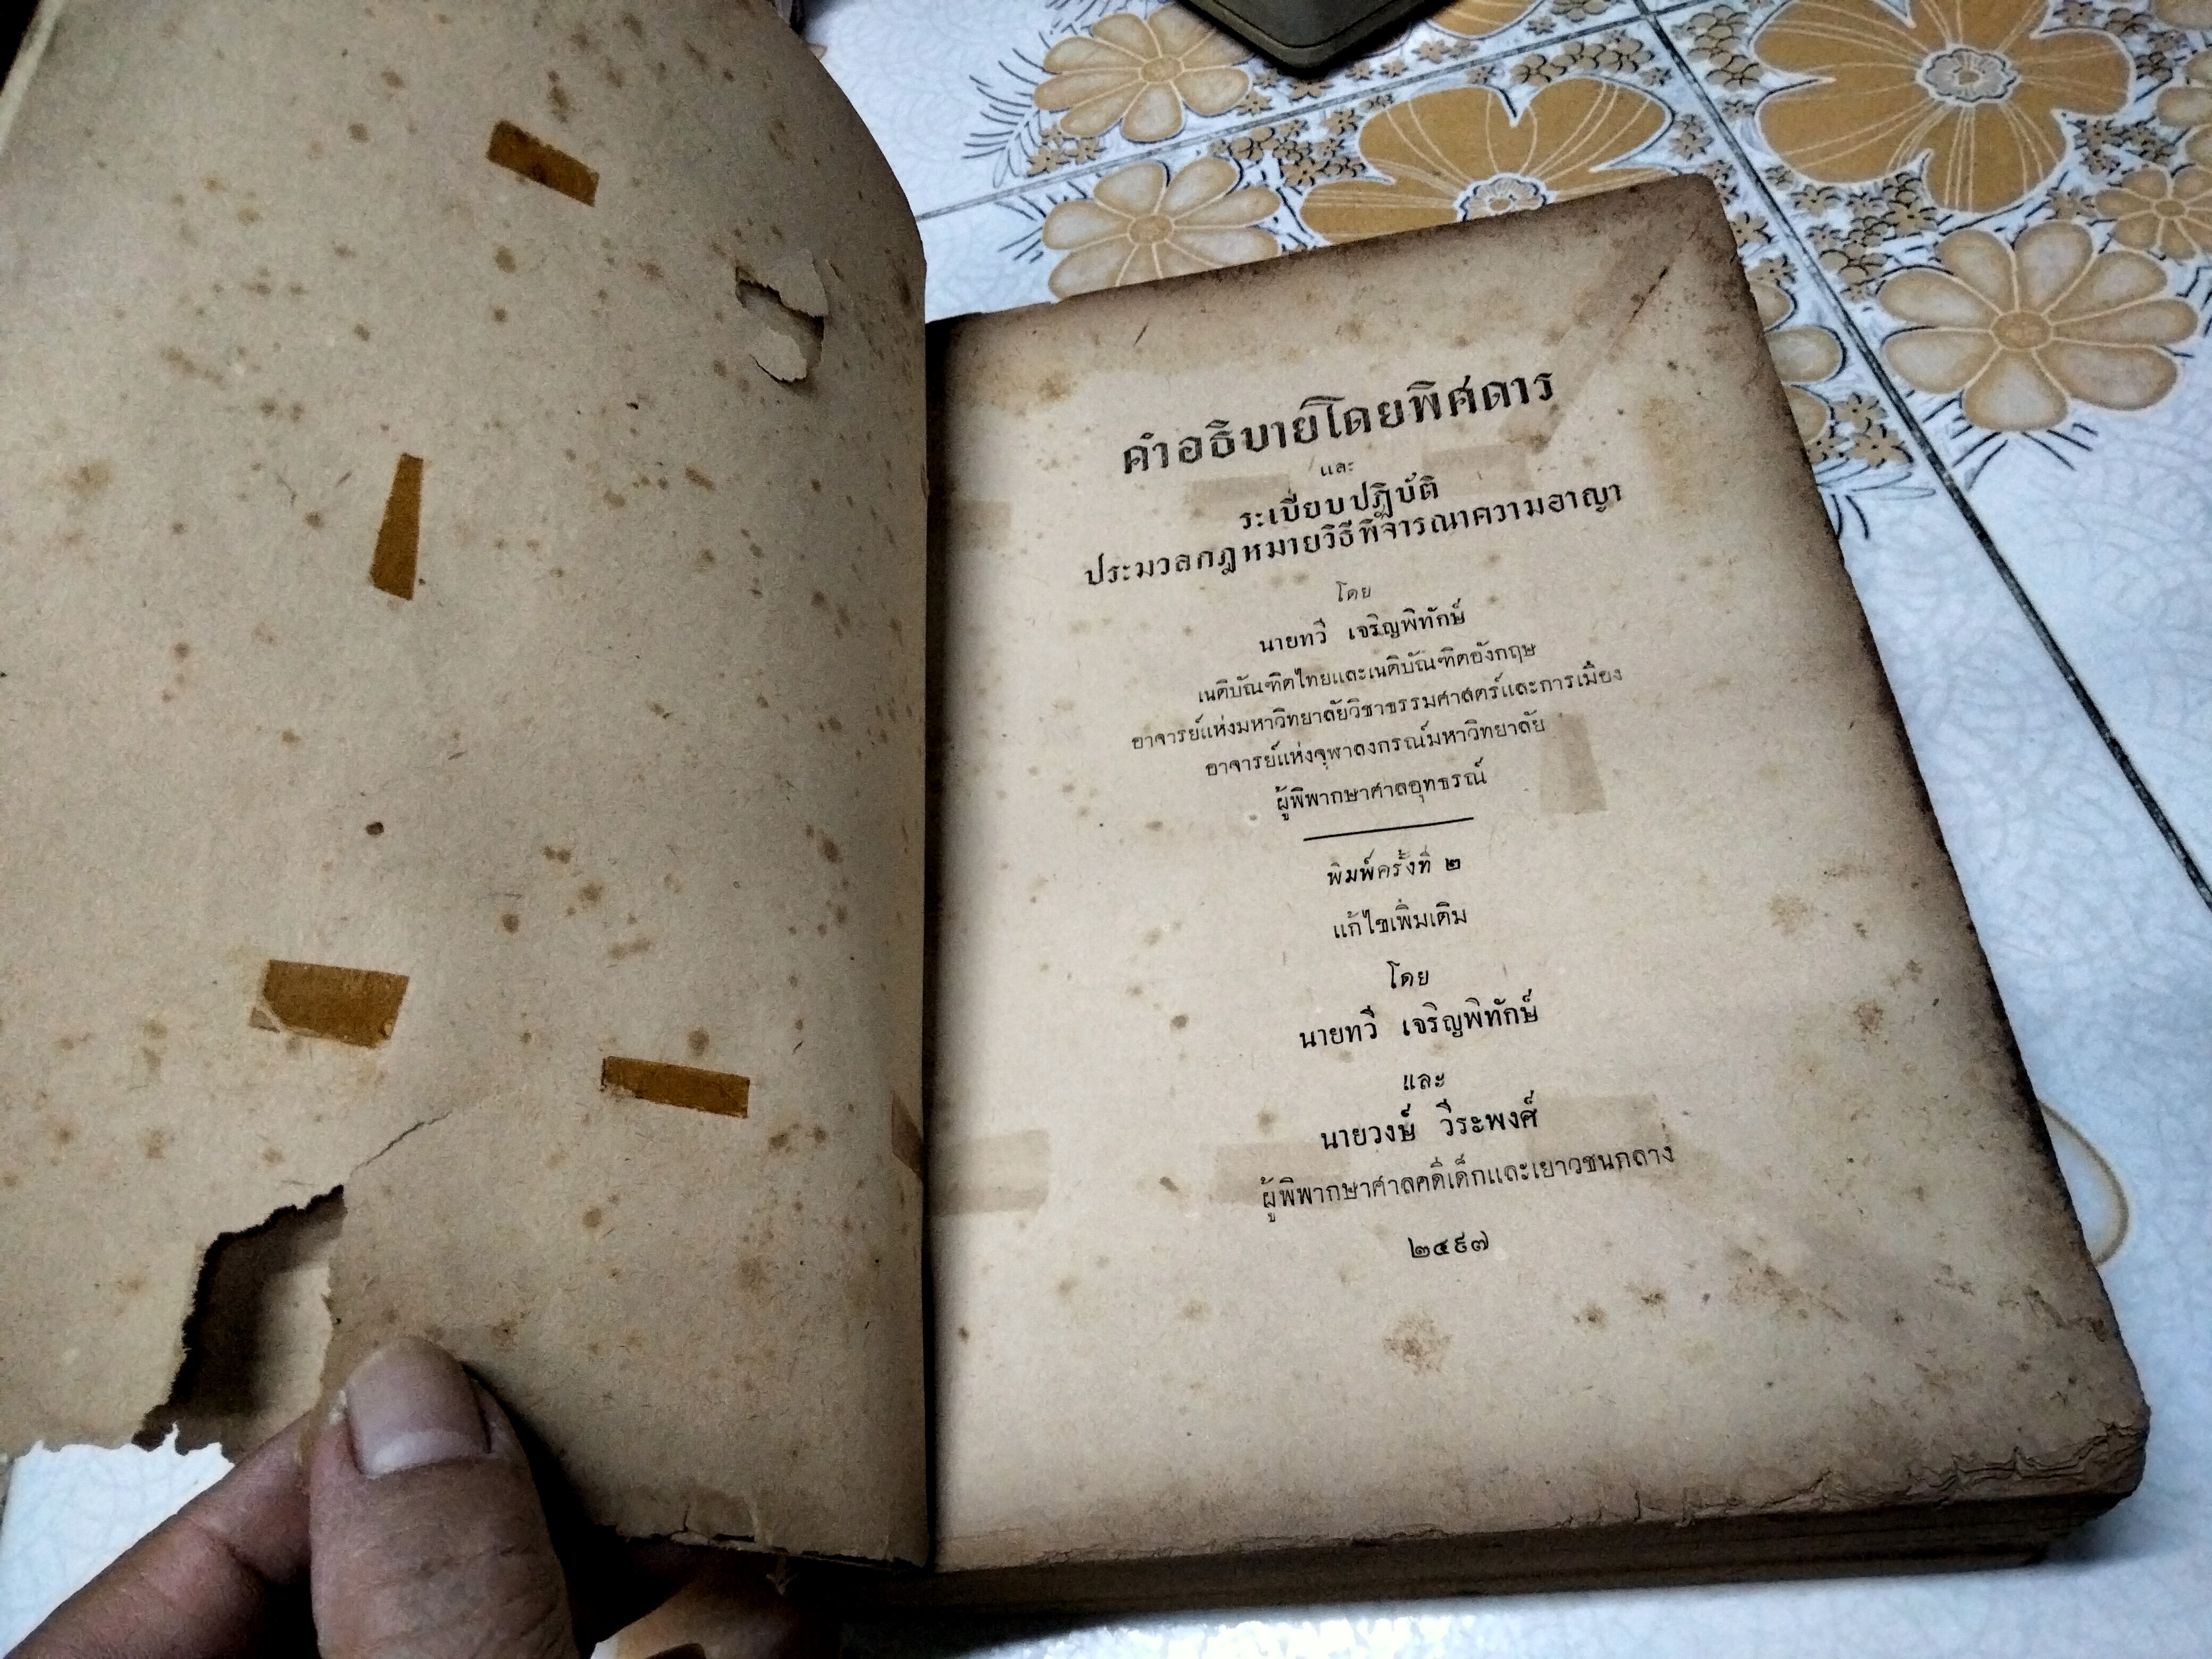 คำอธิบายโดยพิศดาร
และ
ระเบียบปฏิบัติ
ประมวลกฎหมายวิธีพิจารณาความอาญา
โดย
นายทวี เจริญพิทักษ์
เนติบัณฑิตไทยและเนติบัณฑิตอังกฤษ
อาจารย์แห่งมหาวิทยาลัยวิชาธรรมศาสตร์และการเมือง
อาจารย์แห่งจุฬาลงกรณ์มหาวิทยาลัย
ผู้พิพากษาศาลอุทธรณ์
พิมพ์ครั้งที่ ๒
แก้ไขเพิ่มเติม
โดย
นายทวี เจริญพิทักษ์
และ
นายวงษ์ วีระพงศ์
ผู้พิพากษาศาลคดีเด็กและเยาวชนกลาง
๒๔๙๗